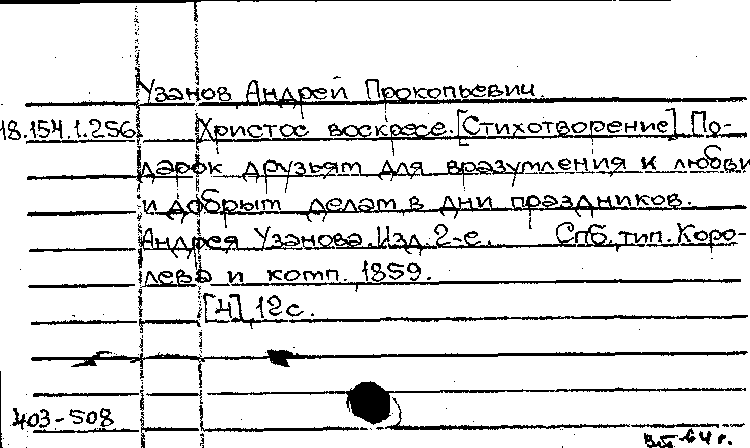 Узанов, Андрей Прокопьевич.
18.154.1.256 Христос воскресе. [Стихотворение]. По-
дарок друзьям для вразумления к любви
и добрым делам, в дни праздников.
Андрея Узанова. Изд. 2-е. Спб., тип. Коро-
лева и комп., 1859.
[4], 12 с.
403-508